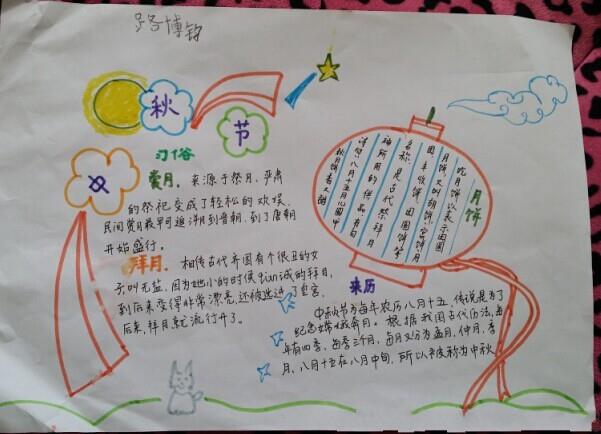 路博
秋
节
习俗
赏月。来源于祭月,严肃
的祭祀变成了轻松的欢娱。
民间赏月最早可追溯月到晋朝,到了唐朝
开始盛行。
拜月。相传古代齐国有个很丑的女
子叫无盐,因为她小的时候qian诚的拜月,
到后来变得非常漂亮,还被选进了皇宫,
后来,拜月就流行开了。
月饼
吃月饼以表示团圆
月饼,又叫胡饼,宫饼,月
团,丰收饼,团圆饼等
名称,是古代祭拜月
神所用的供品,有句
诗句:八月十五月儿圆中
秋月饼香又甜
来历
中秋节为每年农历八月十五,传说是为了
纪念嫦娥奔月。根据我国古代历法,每
年有四季,每季三个月,每月又分为孟月,仲月,季
月,八月十五在八月中旬,所以被称为中秋